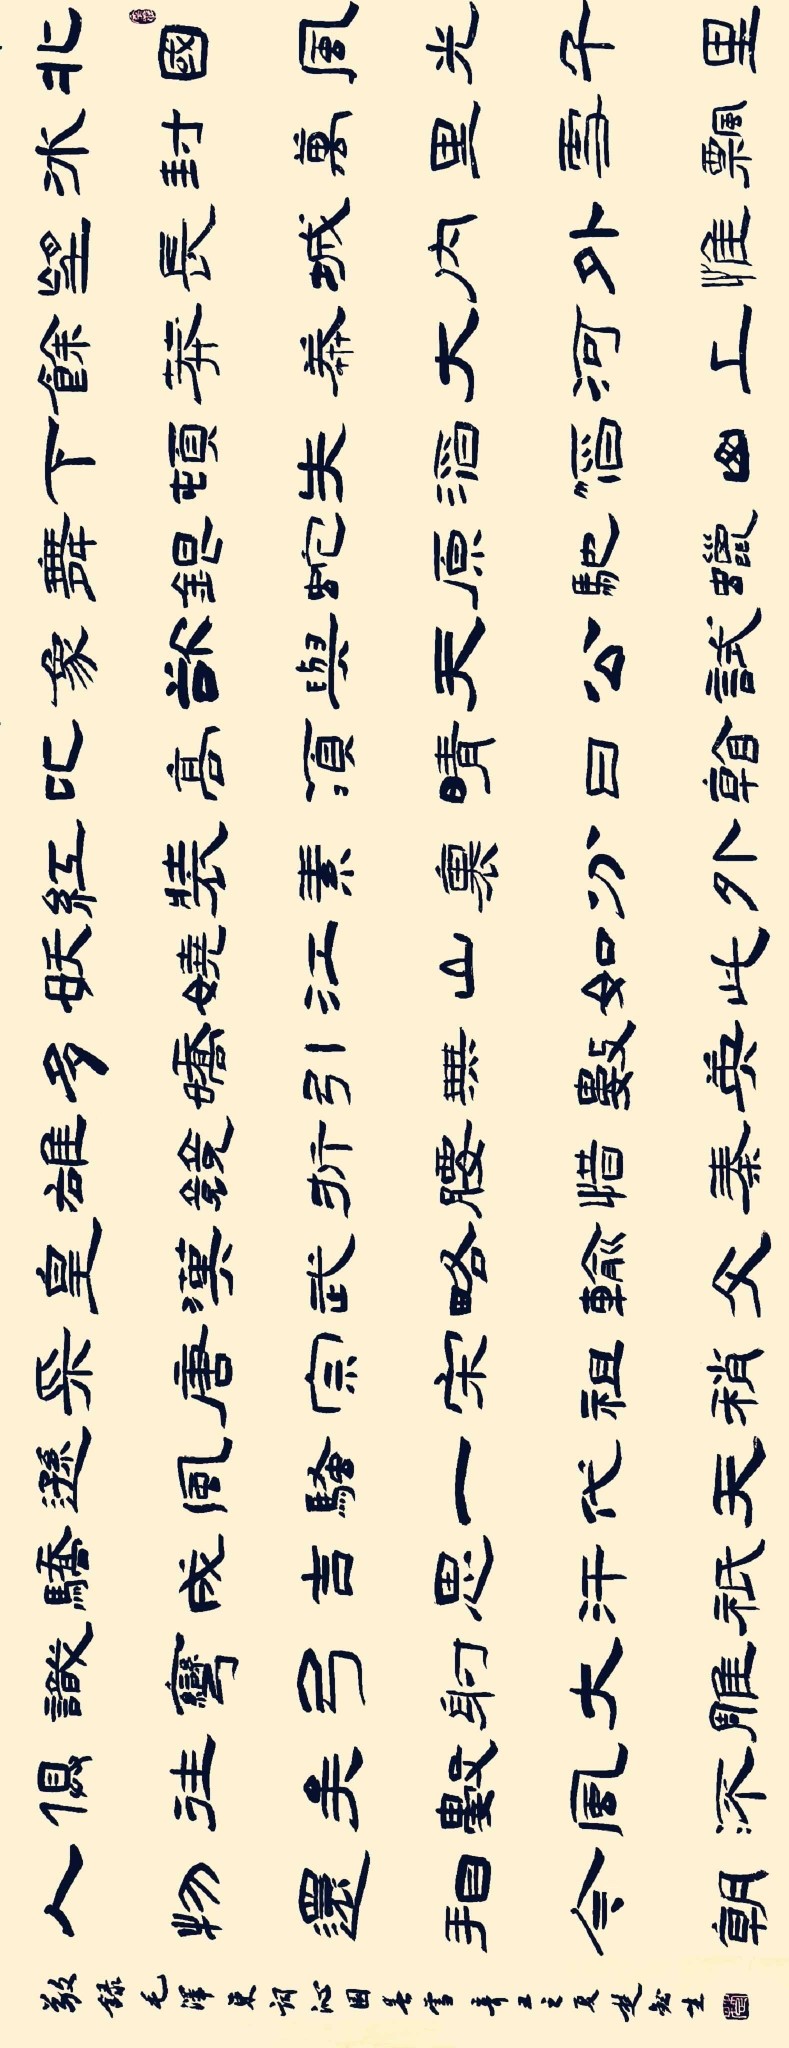 北國風光千里
冰封萬里雪飄
望長城內外惟
餘莽莽大河上
下頓失滔滔山
舞銀蛇原馳蠟
象欲與天公試
比高須晴日看
紅裝素裹分外
妖嬈江山如此
多嬌引無數英
雄競折腰惜秦
皇漢武略輸文
采唐宗宋祖稍
遜風騷一代天
驕成吉思汗祇
識彎弓射大雕
俱往矣數風流
人物還看今朝
敬錄毛澤東詞沁園春雪辛丑之夏